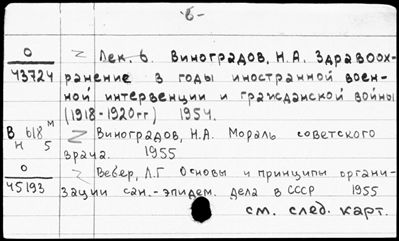 -6-
О 43724 Z Лек. 6. Виноградов, Н.А. Здравоох-
ранение в годы иностранной воен-
ной интервенции и гражданской войны
(1918-1920гг) 1954.
В 618 м Н 5 Z Виноградов, Н.А. Мораль советского
врача. 1955
О 45193 Z Вебер, Л.Г Основы и принципы органи-
зации сан.-эпидем. дела в СССР 1955
см. след. карт.